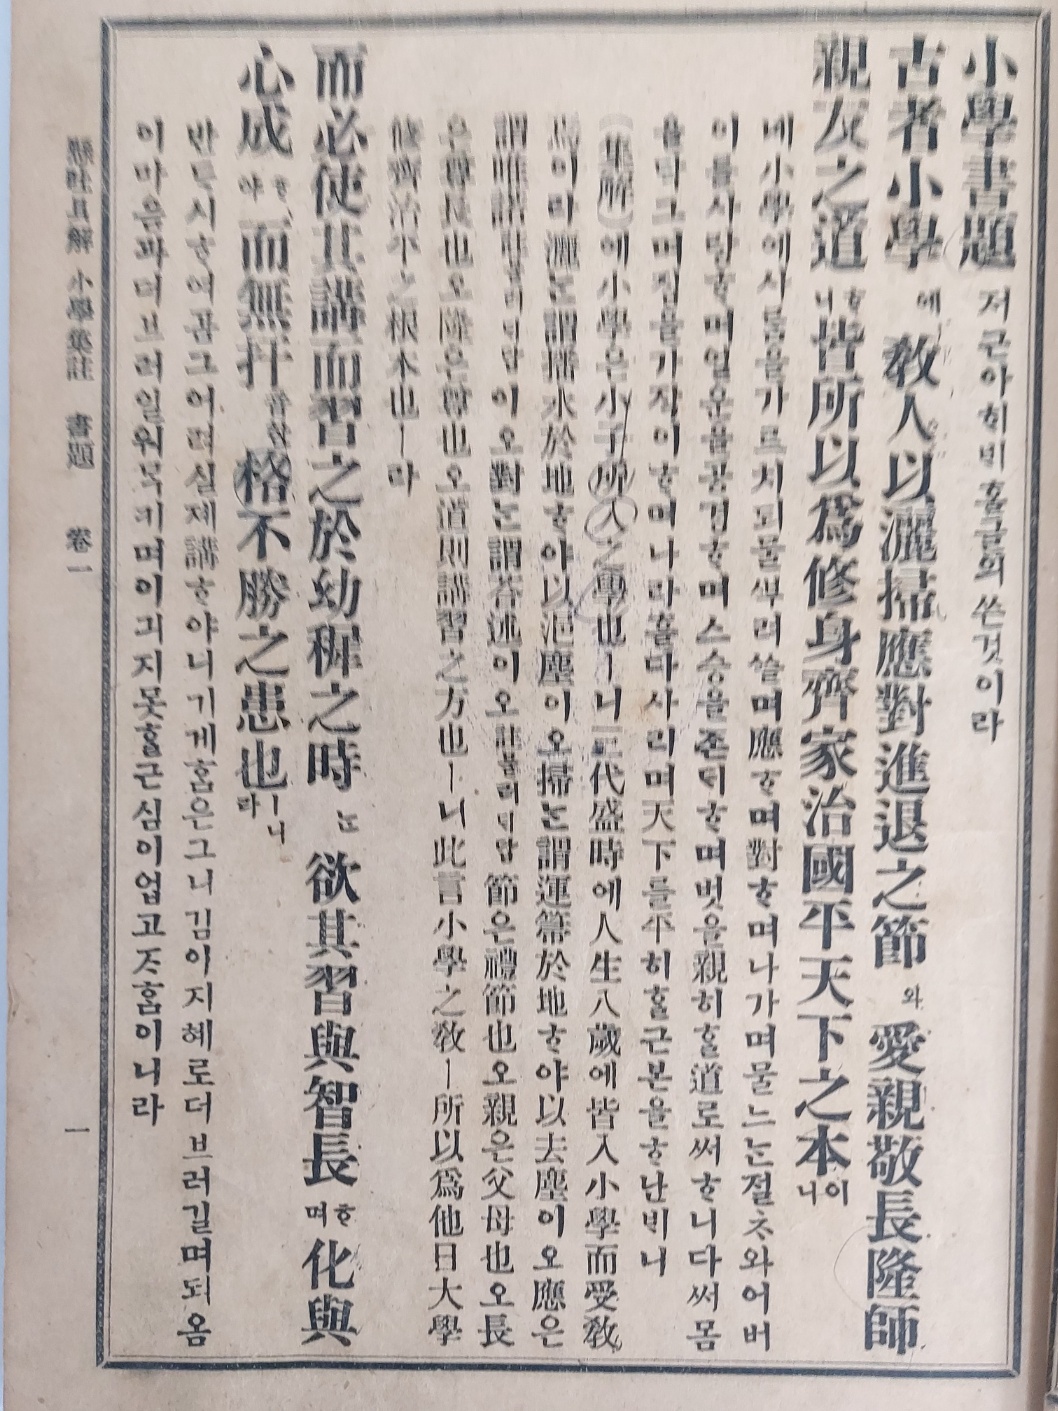 小學書題 저근아희비홀글의쓴것이라
古者小學에 敎人以灑掃應對進退之節와 愛親敬長隆師
親友之道ᄒᆞ니 皆所以爲修身齊家治國平天下之本이니
녜小學에사ᄅᆞᆷ을가ᄅᆞ치되물ᄲᅮ려쓸며應ᄒᆞ며對ᄒᆞ며나가며물느ᄂᆞᆫ졀ᄎᆞ와어버
이를사랑ᄒᆞ며얼운을공경ᄒᆞ며스승을존ᄃᆡᄒᆞ며벗을親히ᄒᆞᆯ道로써ᄒᆞ니다써몸
을닥그며집을가작이ᄒᆞ며나라ᄒᆞᆯ다사리며天下를平히ᄒᆞᆯ근본을ᄒᆞ난ᄇᆡ니
(集解)에小學은小子所入之學也ㅣ니三代盛時에人生八歲에皆入小學而受敎
焉이라灑ᄂᆞᆫ謂播水於地ᄒᆞ야以浥塵이오掃ᄂᆞᆫ謂運箒於地ᄒᆞ야以去塵이오應은
謂唯諾註블러ᄃᆡ답이오對ᄂᆞᆫ謂答述이오註블러ᄃᆡ답節은禮節也오親은父母也오長
은尊長也오隆은尊也오道則講習之方也ㅣ니此言小學之敎ㅣ所以爲他日大學
修齊治平之根本也ㅣ라
而必使其講而習之於幼穉之時ᄂᆞᆫ 欲其習與智長ᄒᆞ며 化與
心成ᄒᆞ야 而無扞音한格不勝之患也ㅣ니라
반ᄃᆞ시ᄒᆞ여곰그어려실제講ᄒᆞ야니기게홈은그니김이지혜로더브러길며되옴
이마음과더브러일워목키며이긔지못ᄒᆞᆯ근심이업고ᄌᆞ홈이니라
懸吐具解 小學集註 書題 卷一 一